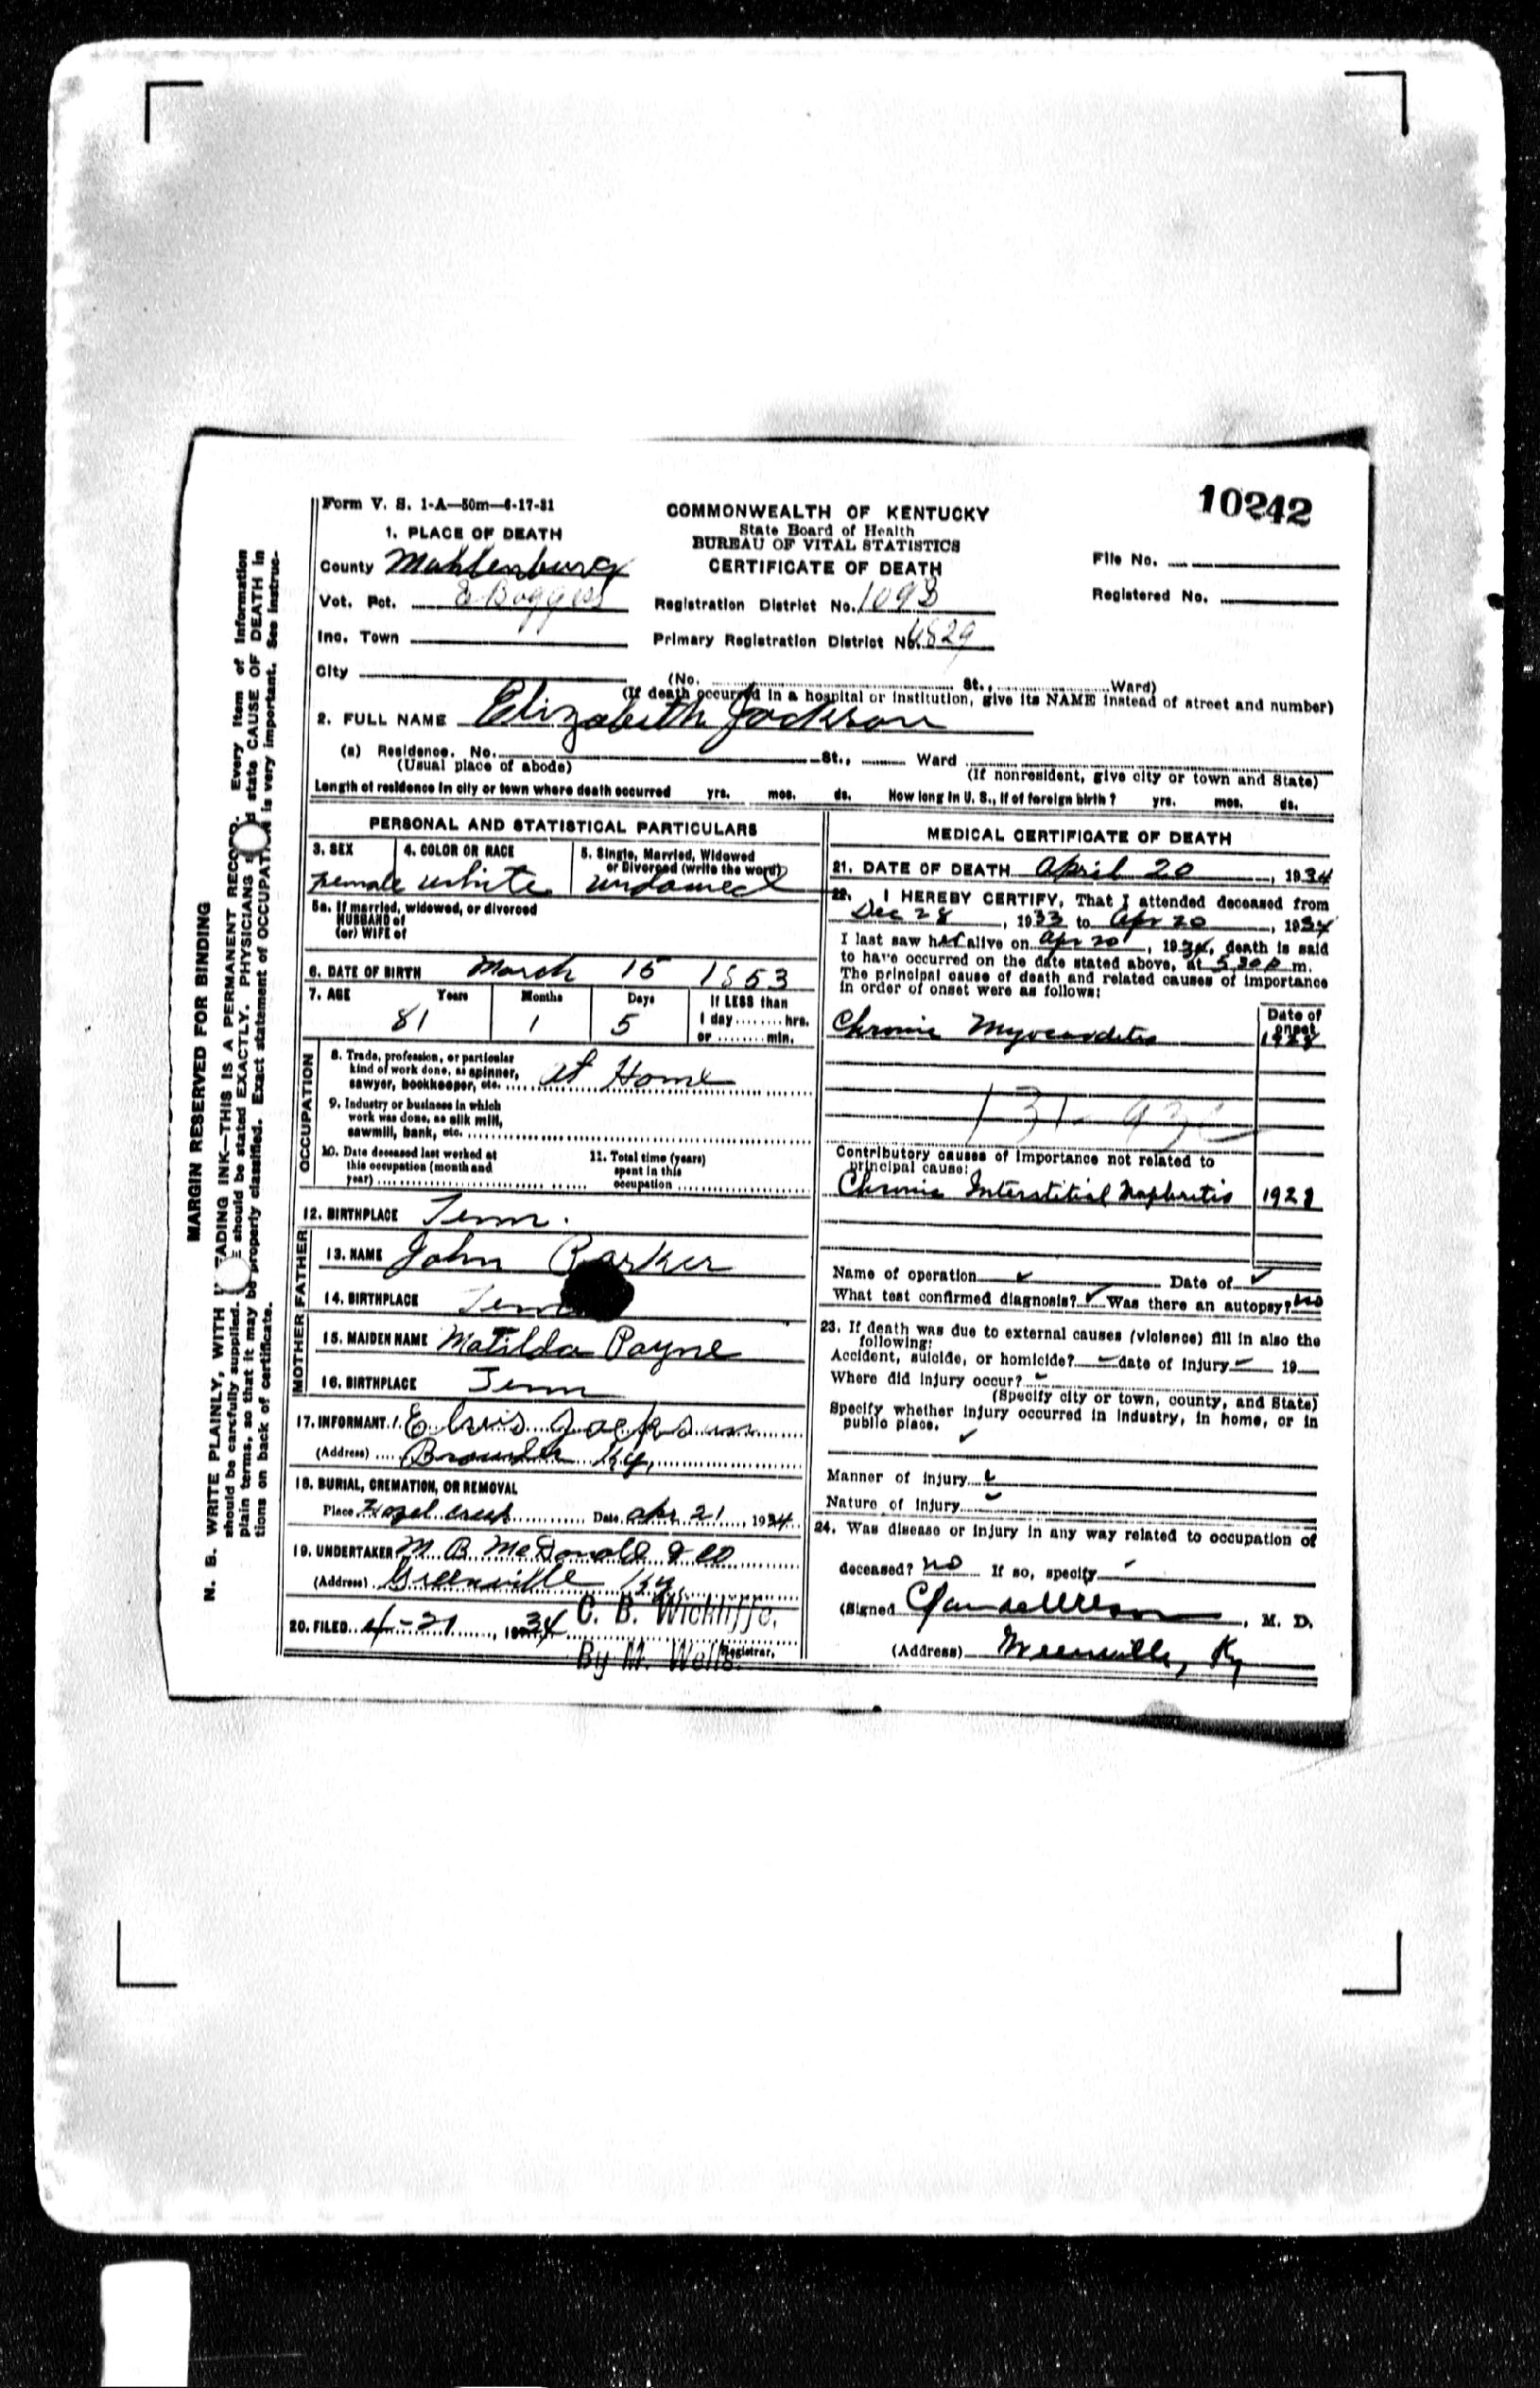 10242
Form V. S. 1-A—50m—6-17-31
COMMONWEALTH OF KENTUCKY
State Board of Health
BUREAU OF VITAL STATISTICS
CERTIFICATE OF DEATH
1. PLACE OF DEATH
County Muhlenburg
Vot. Pct. E Boggess
Inc. Town
City
Registration District No. 1098
Primary Registration District No. 6829
File No.
Registered No.
(No. St., Ward)
(If death occurred in a hospital or institution, give its NAME instead of street and number)
2. FULL NAME Elizabeth Jackson
(a) Residence. No. St., Ward
(Usual place of abode)
(If nonresident, give city or town and State)
Length of residence in city or town where death occurred yrs. mos. ds. How long in U. S., if of foreign birth? yrs. mos. ds.
PERSONAL AND STATISTICAL PARTICULARS
3. SEX 4. COLOR OR RACE 5. Single, Married, Widowed
or Divorced (write the word)
Female White widowed
5a. If married, widowed, or divorced
HUSBAND of
(or) WIFE of
6. DATE OF BIRTH March 15 1853
7. AGE Years Months Days If LESS than
81 1 5 1 day........hrs.
or ........min.
OCCUPATION
8. Trade, profession, or particular
kind of work done, as spinner,
sawyer, bookkeeper, etc. at Home
9. Industry or business in which
work was done, as silk mill,
sawmill, bank, etc.
10. Date deceased last worked at
this occupation (month and
year)
11. Total time (years)
spent in this
occupation
12. BIRTHPLACE Tenn.
FATHER
13. NAME John Parker
14. BIRTHPLACE Tenn
MOTHER
15. MAIDEN NAME Matilda Payne
16. BIRTHPLACE Tenn
17. INFORMANT Elvis Jackson
(Address) Browder Ky.
18. BURIAL, CREMATION, OR REMOVAL
Place Hazel Creek Date Apr 21, 1934
19. UNDERTAKER M. B. McDonald & Co
(Address) Greenville Ky.
20. FILED 4-21, 1934 C. B. Wickliffe,
Registrar.
By M. Wells.
MEDICAL CERTIFICATE OF DEATH
21. DATE OF DEATH April 20, 1934
22. I HEREBY CERTIFY, That I attended deceased from
Dec 28, 1933 to Apr 20, 1934
I last saw her alive on Apr 20, 1934, death is said
to have occurred on the date stated above, at 5 30 P m.
The principal cause of death and related causes of importance
in order of onset were as follows:
Date of
onset
Chronic Myocarditis
131-93c
Contributory causes of importance not related to
principal cause:
Chronic Interstitial Nephritis 1928
Name of operation ✓ Date of ✓
What test confirmed diagnosis? ✓ Was there an autopsy? no
23. If death was due to external causes (violence) fill in also the
following:
Accident, suicide, or homicide? date of injury 19
Where did injury occur?
(Specify city or town, county, and State)
Specify whether injury occurred in industry, in home, or in
public place.
✓
Manner of injury
Nature of injury
24. Was disease or injury in any way related to occupation of
deceased? no If so, specify
(Signed , M. D.
(Address) Greenville, Ky
MARGIN RESERVED FOR BINDING
N. B. WRITE PLAINLY, WITH ADING INK—THIS IS A PERMANENT RECORD. Every item of information
should be carefully supplied. should be stated EXACTLY. PHYSICIANS state CAUSE OF DEATH in
plain terms, so that it may be properly classified. Exact statement of OCCUPATION is very important. See instruc-
tions on back of certificate.